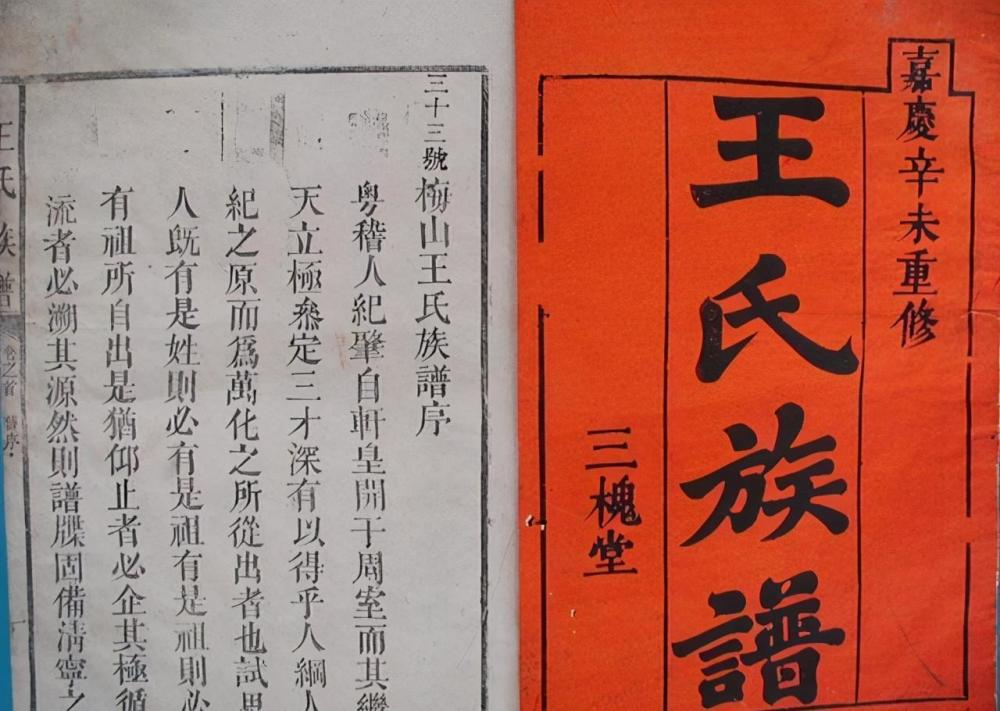 嘉慶辛未重修
王氏族譜
三槐堂
三十三號梅山王氏族譜序
粤稽人紀肇自軒皇開于周室而其繼
天立極叅定三才深有以得乎人綱人
紀之原而爲萬化之所從出者也試思
人旣有是姓則必有是祖有是祖則必
有祖所自出是猶仰止者必企其極循
流者必溯其源然則譜牒固備清寧之
王氏族譜
卷之首